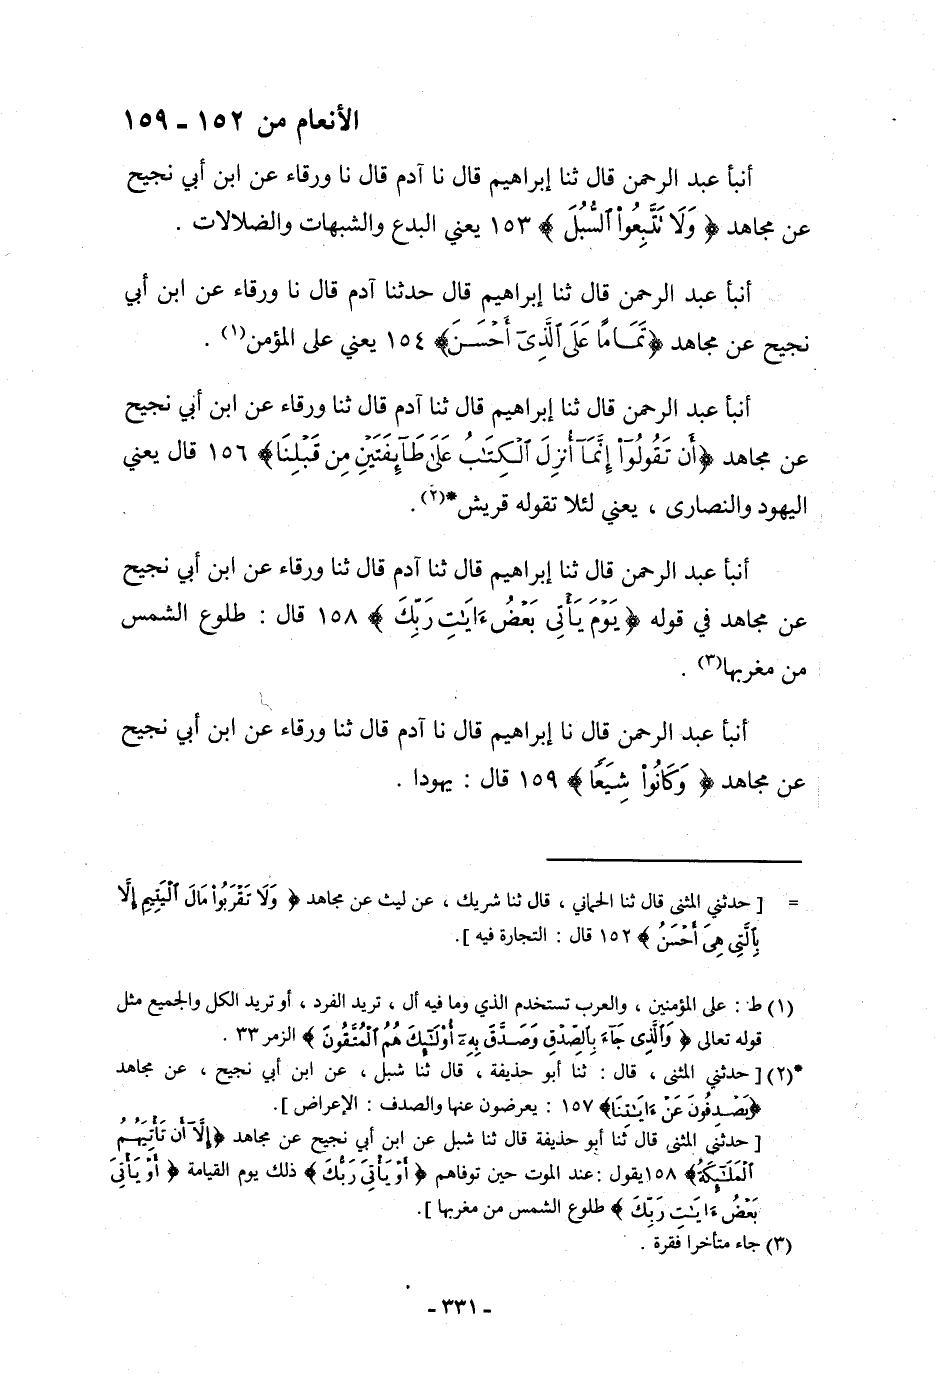 الأنعام من ١٥٢ ـ ١٥٩
أنبأ عبد الرحمن قال ثنا إبراهيم قال نا آدم قال نا ورقاء عن ابن أبي نجيح
عن مجاهد ﴿ وَلَا تَتَّبِعُواْ ٱلسُّبُلَ ﴾ ١٥٣ يعني البدع والشبهات والضلالات .
أنبأ عبد الرحمن قال ثنا إبراهيم قال حدثنا آدم قال نا ورقاء عن ابن أبي
نجيح عن مجاهد ﴿تَمَامًا عَلَى ٱلَّذِىٓ أَحْسَنَ﴾ ١٥٤ يعني على المؤمن(١) .
أنبأ عبد الرحمن قال ثنا إبراهيم قال ثنا آدم قال ثنا ورقاء عن ابن أبي نجيح
عن مجاهد ﴿أَن تَقُولُوٓاْ إِنَّمَآ أُنزِلَ ٱلْكِتَٰبُ عَلَىٰ طَآئِفَتَيْنِ مِن قَبْلِنَا﴾ ١٥٦ قال يعني
اليهود والنصارى ، يعني لئلا تقوله قريش*(٢).
أنبأ عبد الرحمن قال ثنا إبراهيم قال ثنا آدم قال ثنا ورقاء عن ابن أبي نجيح
عن مجاهد في قوله ﴿ يَوْمَ يَأْتِى بَعْضُ ءَايَٰتِ رَبِّكَ ﴾ ١٥٨ قال : طلوع الشمس
من مغربها(٣) .
أنبأ عبد الرحمن قال نا إبراهيم قال نا آدم قال ثنا ورقاء عن ابن أبي نجيح
عن مجاهد ﴿ وَكَانُواْ شِيَعًا ﴾ ١٥٩ قال : يهودا .
= [ حدثني المثنى قال ثنا الحماني ، قال ثنا شريك ، عن ليث عن مجاهد ﴿ وَلَا تَقْرَبُواْ مَالَ ٱلْيَتِيمِ إِلَّا
بِٱلَّتِى هِىَ أَحْسَنُ ﴾ ١٥٢ قال : التجارة فيه ].
(١) ط : على المؤمنين ، والعرب تستخدم الذي وما فيه أل ، تريد الفرد ، أو تريد الكل والجميع مثل
قوله تعالى ﴿ وَٱلَّذِى جَآءَ بِٱلصِّدْقِ وَصَدَّقَ بِهِۦٓ أُوْلَٰٓئِكَ هُمُ ٱلْمُتَّقُونَ ﴾ الزمر ٣٣ .
*(٢) [ حدثني المثنى ، قال : ثنا أبو حذيفة ، قال ثنا شبل ، عن ابن أبي نجيح ، عن مجاهد
﴿يَصْدِفُونَ عَنْ ءَايَٰتِنَا﴾ ١٥٧ : يعرضون عنها والصدف : الإعراض ].
[ حدثني المثنى قال ثنا أبو حذيفة قال ثنا شبل عن ابن أبي نجيح عن مجاهد ﴿إِلَّآ أَن تَأْتِيَهُمُ
ٱلْمَلَٰٓئِكَةُ﴾ ١٥٨يقول :عند الموت حين توفاهم ﴿ أَوْ يَأْتِىَ رَبُّكَ ﴾ ذلك يوم القيامة ﴿ أَوْ يَأْتِىَ
بَعْضُ ءَايَٰتِ رَبِّكَ ﴾ طلوع الشمس من مغربها ].
(٣) جاء متأخرا فقرة .
ـ ٣٣١ ـ